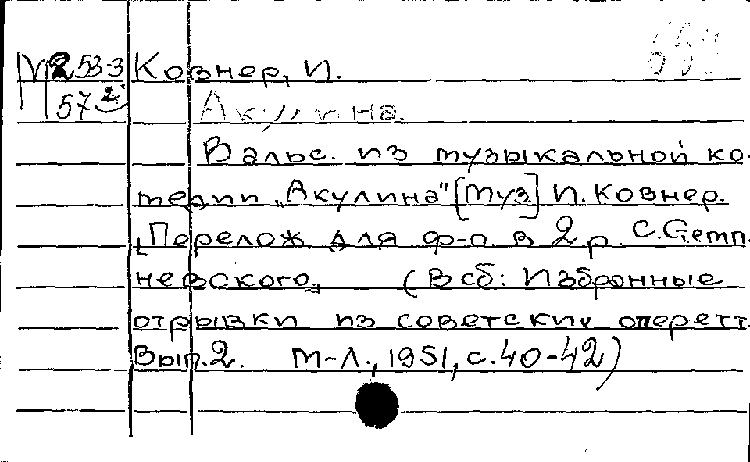 М 253-3 Ковнер, И.
57-2 Акулина.
Вальс. из музыкальной ко-
медии „Акулина" [Муз] И. Ковнер.
[Перелож для ф-п. в 2 р.
невского, (В сб: Избранные
отрывки из советских оперетт.
Вып. 2. М-Л., 1951, с. 40-42)